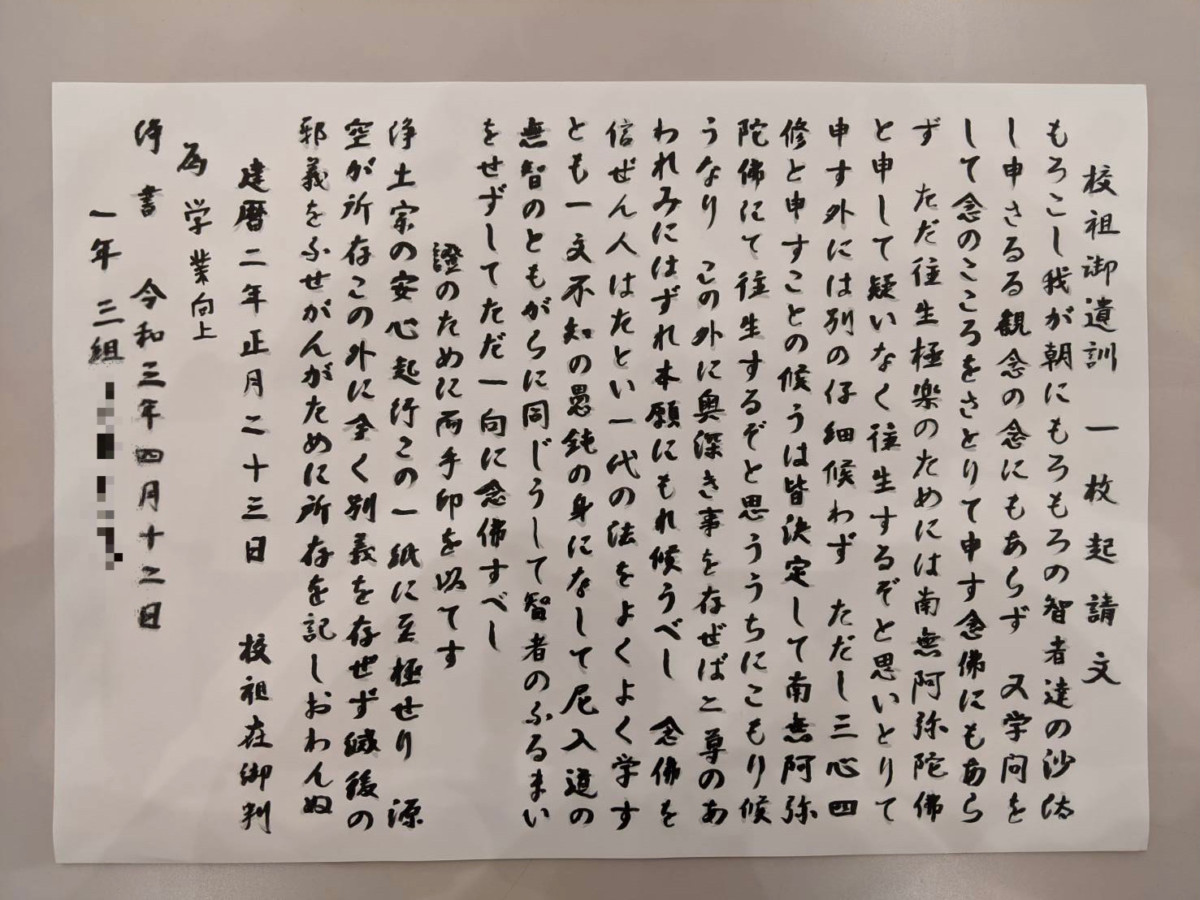 校祖御遺訓 一枚起請文
もろこし我が朝にもろもろの智者達の沙汰
し申さるる観念の念にもあらず 又学問を
して念のこころをさとりて申す念佛にもあら
ず ただ往生極楽のためには南無阿弥陀佛
と申して疑いなく往生するぞと思いとりて
申す外には別の仔細候わず ただし三心四
修と申すことの候うは皆決定して南無阿弥
陀佛にて往生するぞと思ううちにこもり候
うなり この外に奥深き事を存ぜば二尊のあ
われみにはずれ本願にもれ候うべし 念佛を
信ぜん人はたとい一代の法をよくよく学す
とも一文不知の愚鈍の身になして尼入道の
無智のともがらに同じうして智者のふるまい
をせずしてただ一向に念佛すべし
證のために両手印を以てす
浄土宗の安心起行この一紙に至極せり 源
空が所存この外に全く別義を存ぜず滅後の
邪義をふせがんがために所存を記しおわんぬ
建暦二年正月二十三日 校祖在御判
為学業向上
浄書 令和三年四月十二日
一年三組